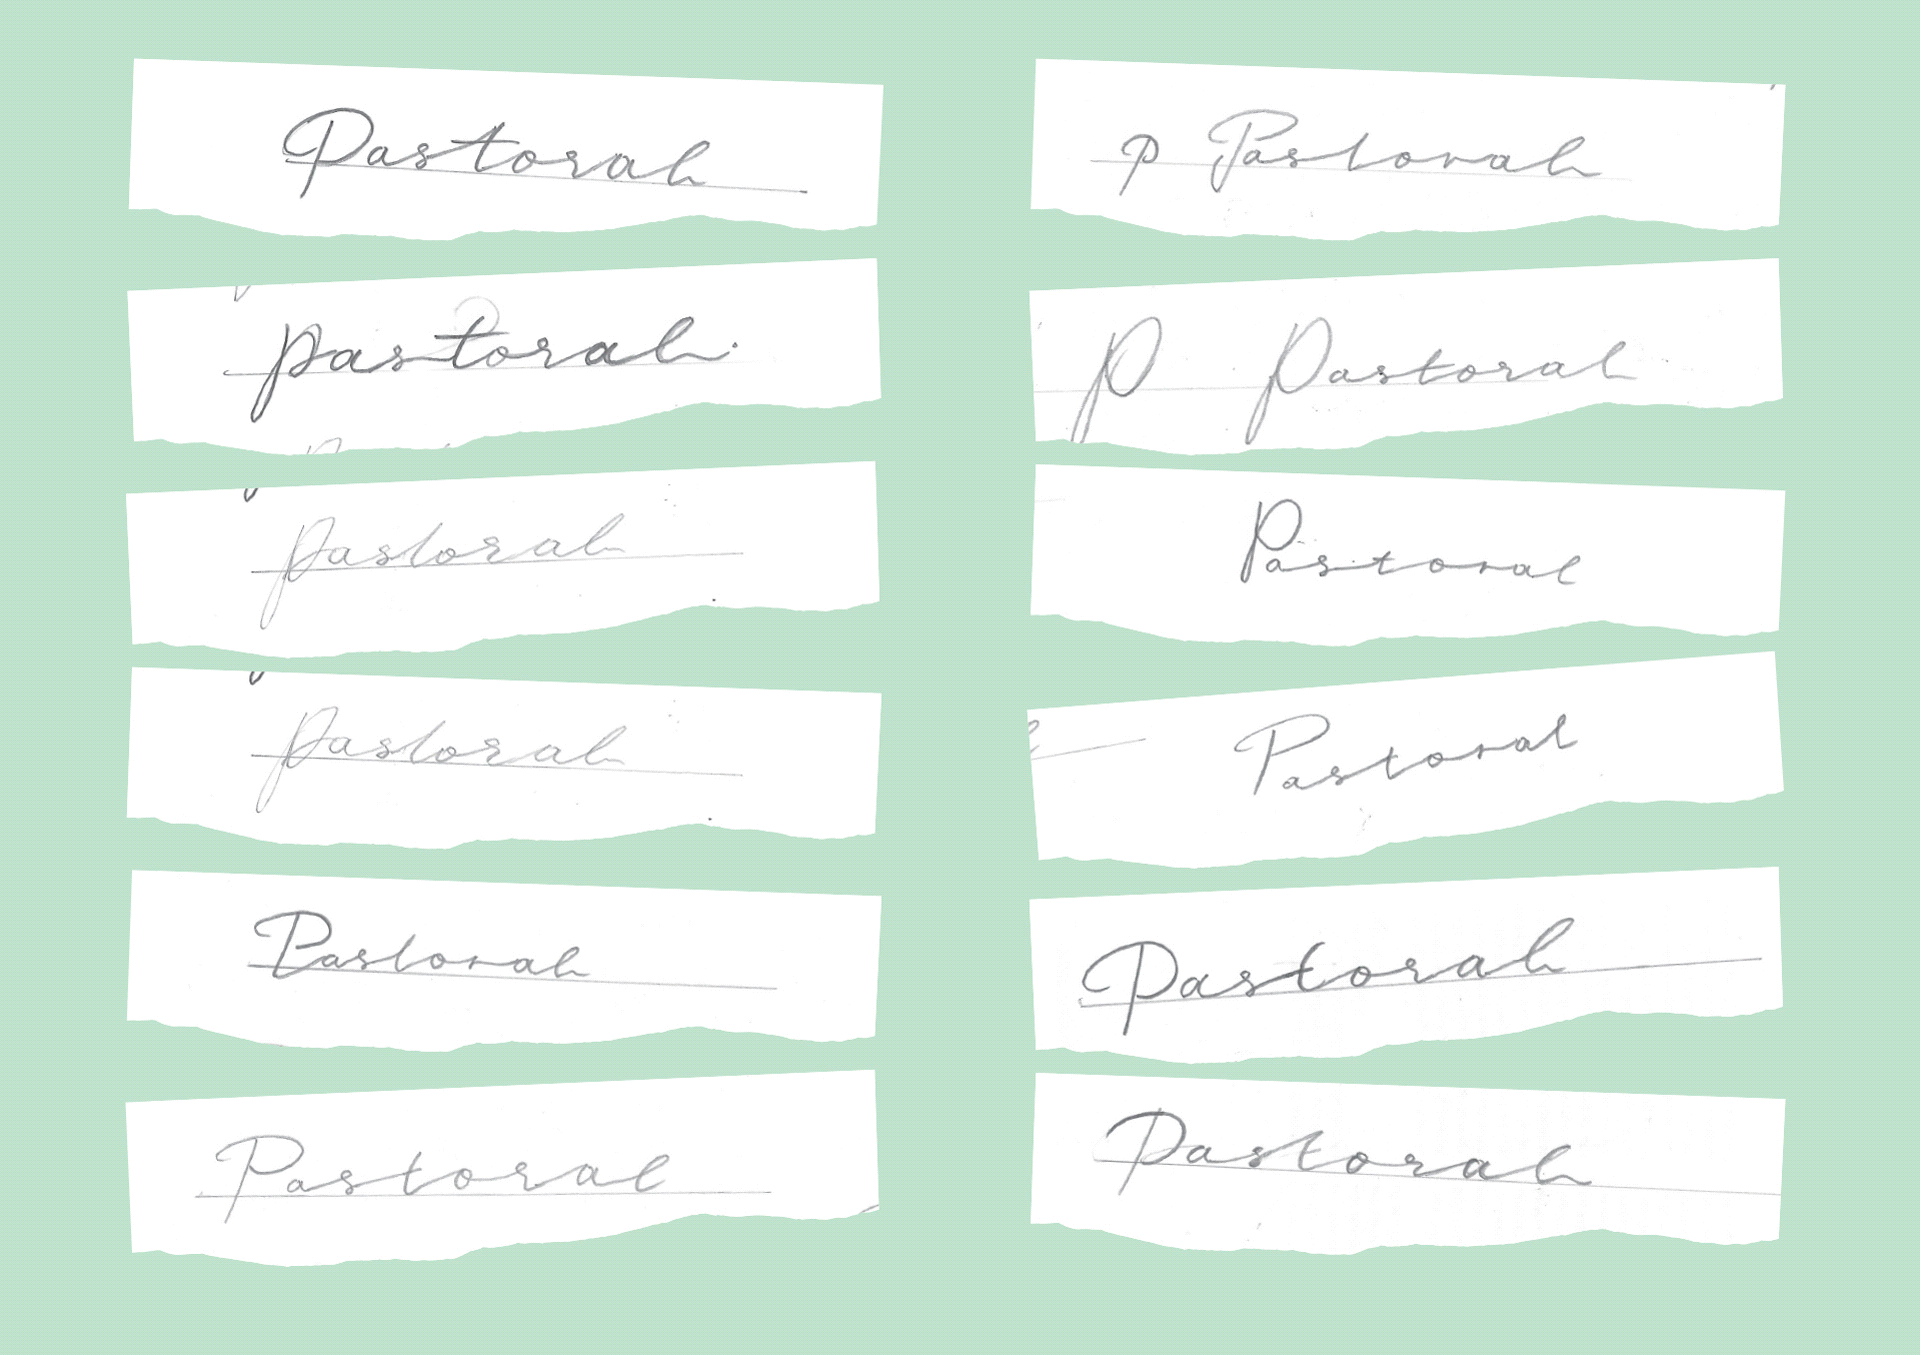 Pastoral
Pastoral
Pastoral
Pastoral
Pastoral
Pastoral
P Pastoral
P Pastoral
Pastoral
Pastoral
Pastoral
Pastoral